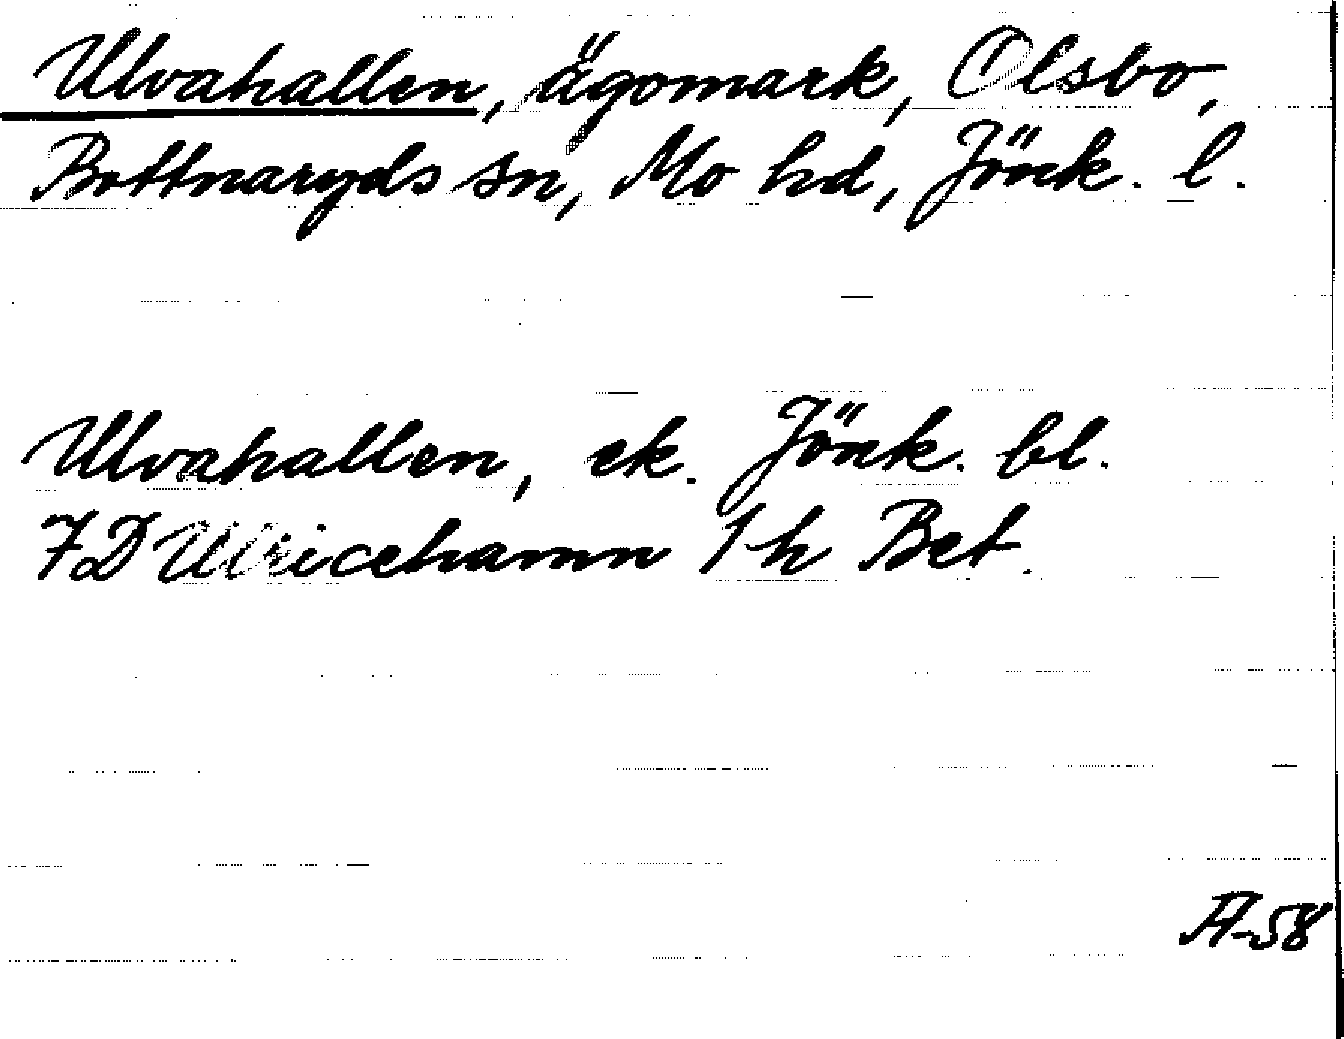 Ulvahallen, ägomark, Olsbo,
Bottnaryds sn, Mo hd, Jönk. l.
Ulvahallen, ek. Jönk. bl.
7D Ulricehamn 1 h Bet.
Å-58